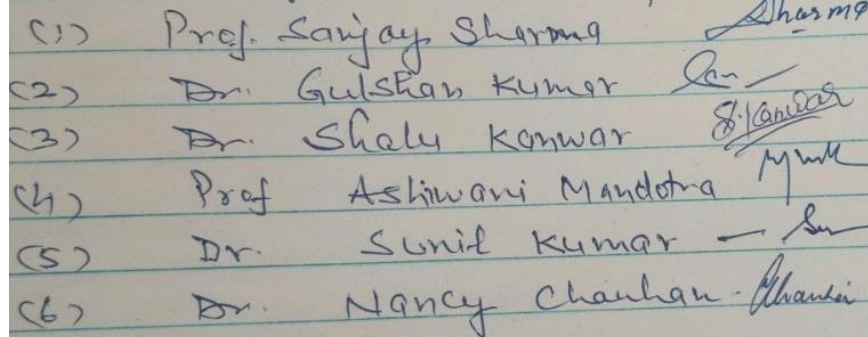 (1) Prof. Sanjay Sharma Sharma
(2) Dr. Gulshan Kumar
(3) Dr. Shalu Kanwar S. Kanwar
(4) Prof Ashwani Mandotra
(5) Dr. Sunil Kumar —
(6) Dr. Nancy Chauhan -